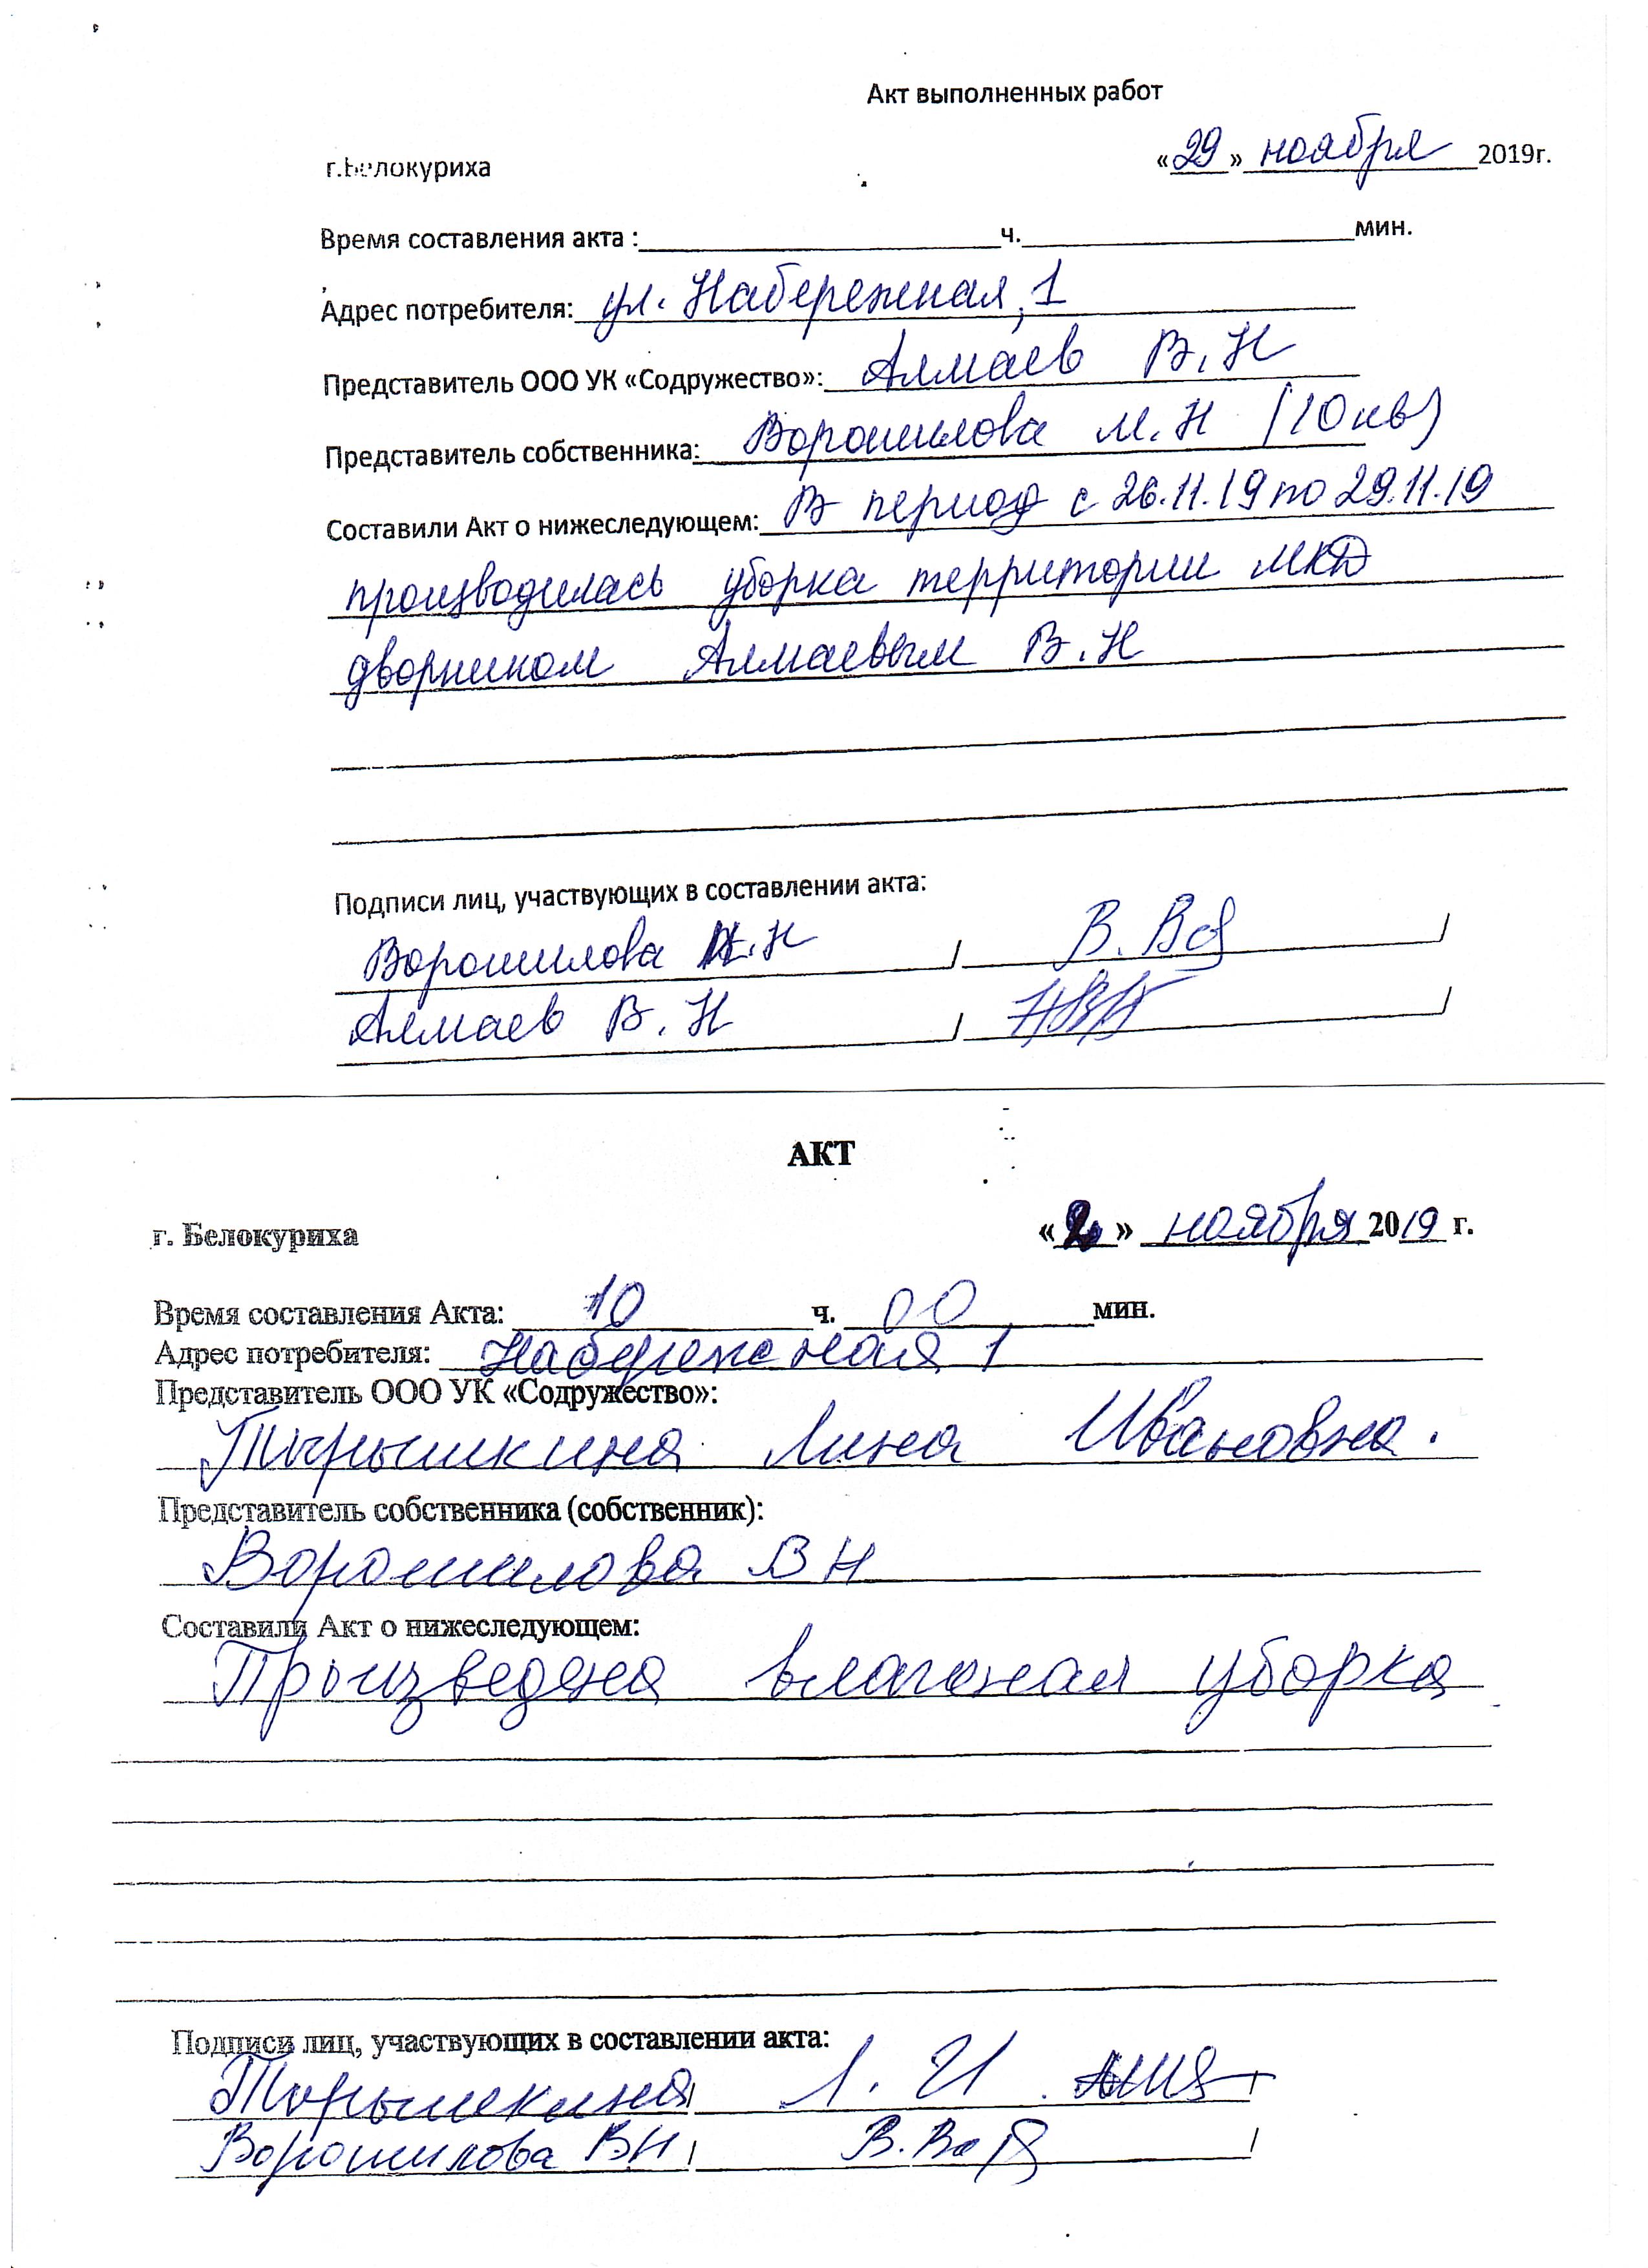 Акт выполненных работ
г.Белокуриха «29» ноября 2019г.
Время составления акта : ч. мин.
Адрес потребителя: ул. Набережная, 1
Представитель ООО УК «Содружество»: Алмаев В.Н
Представитель собственника: Ворошилова М.Н (10кв)
Составили Акт о нижеследующем: В период с 26.11.19 по 29.11.19
производилась уборка территории МКД
дворником Алмаевым В.Н
Подписи лиц, участвующих в составлении акта:
Ворошилова .Н / В. /
Алмаев В.Н / /
АКТ
г. Белокуриха « » ноября 2019 г.
Время составления Акта: 10 ч. 00 мин.
Адрес потребителя: Набережная 1
Представитель ООО УК «Содружество»:
Тырышкина Лина Ивановна.
Представитель собственника (собственник):
Ворошилова ВН
Составили Акт о нижеследующем:
Произведена влажная уборка
Подписи лиц, участвующих в составлении акта:
Тырышкина / Л. И. /
Ворошилова ВН / В. /